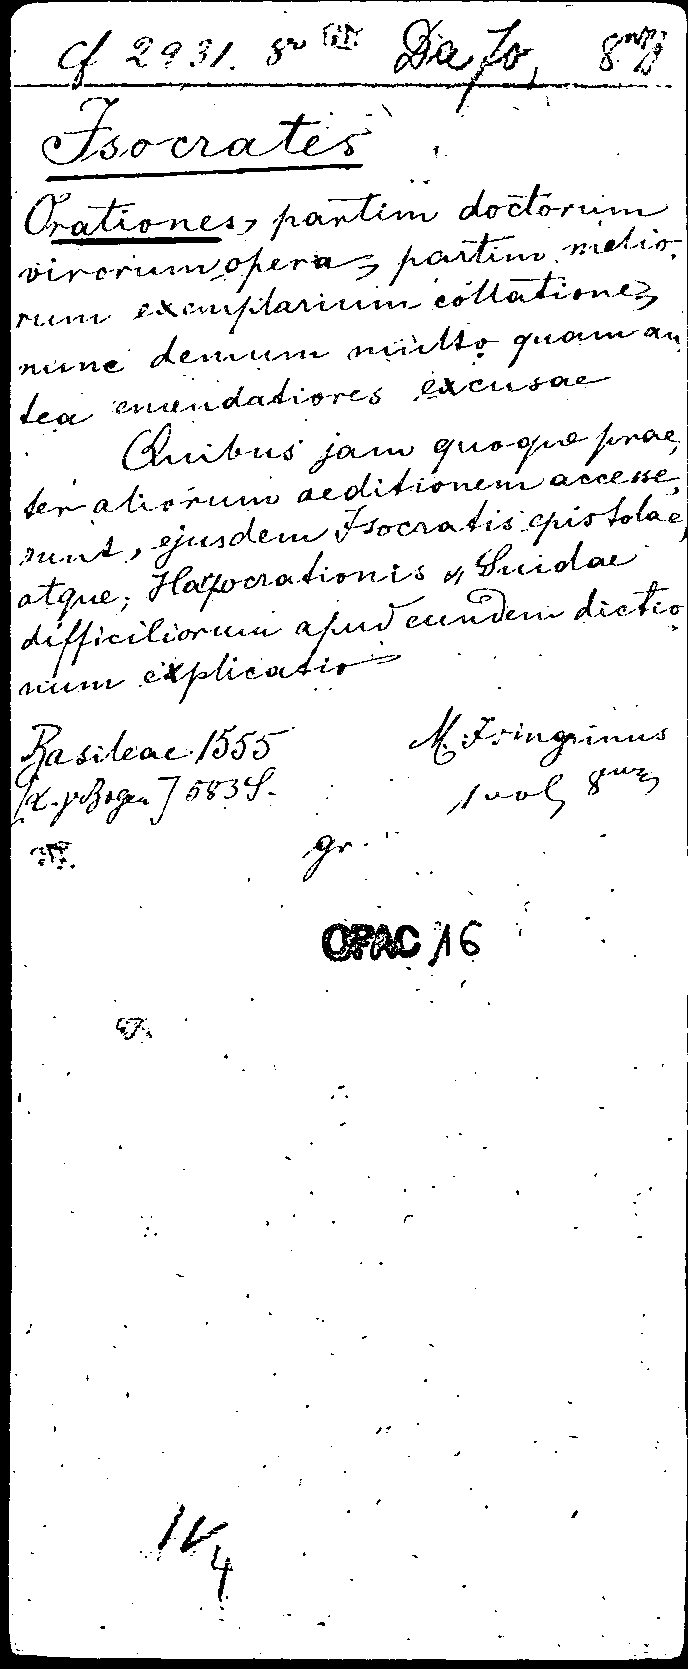 Cf 2931. 8º Da 70, 8
Isocrates
Orationes, partim doctorum
virorum opera, partim melio-
rum exemplarium collatione,
nunc demum multo quam an
tea emendatiores excusae
Quibus jam quoque prae,
ter aliorum aeditionem accesse,
runt, ejusdem Isocratis epistolae,
atque, Harpocrationis & Suidae
difficiliorum apud eundem dictio-
num explicatio
Basileae 1555 M. Isingrinus
Bogen] 583 S. 1 vol,
gr.
OPAC 16
IV
4